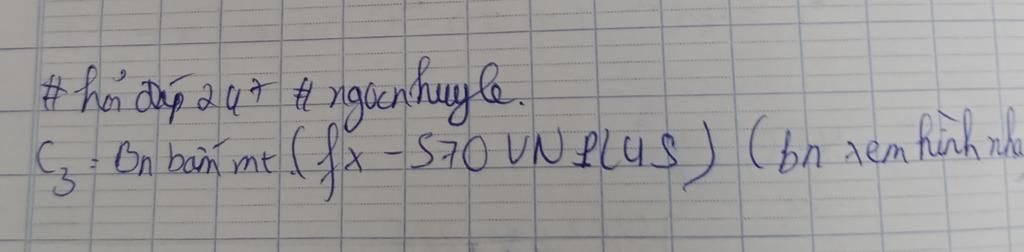 # hỏi đáp 247 # ngocnhuyle.
C3: Bn bấm mt (fx - 570 VN PLUS) (bn xem hình nha